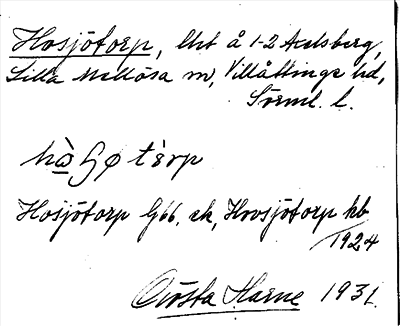 Hosjötorp, lht å 1-2 Axelsberg,
Lilla Mellösa sn, Villåttinge hd,
Sörml. l.
hòʃø tèrp
Hosjötorp G66. ek, Hovsjötorp kb
1924
Gösta Harne 1931.